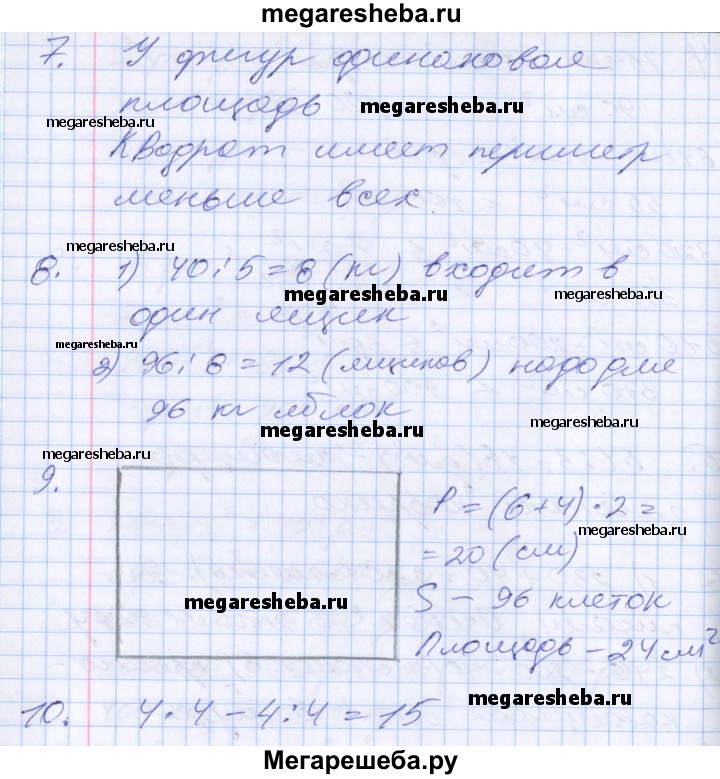 megaresheba.ru
7. У фигур одинаковая
площадь megaresheba.ru
megaresheba.ru
Квадрат имеет периметр
меньше всех.
megaresheba.ru
8. 1) 40:5=8 (кг) входит в
megaresheba.ru megaresheba.ru
один ящик
megaresheba.ru
2) 96:8=12 (ящиков) надо для
96 кг яблок megaresheba.ru
megaresheba.ru
9. megaresheba.ru
P=(6+4)·2=
megaresheba.ru
=20 (см)
megaresheba.ru
S – 96 клеток
Площадь – 24 см²
megaresheba.ru
10. 4·4–4:4=15
Мегарешеба.ру